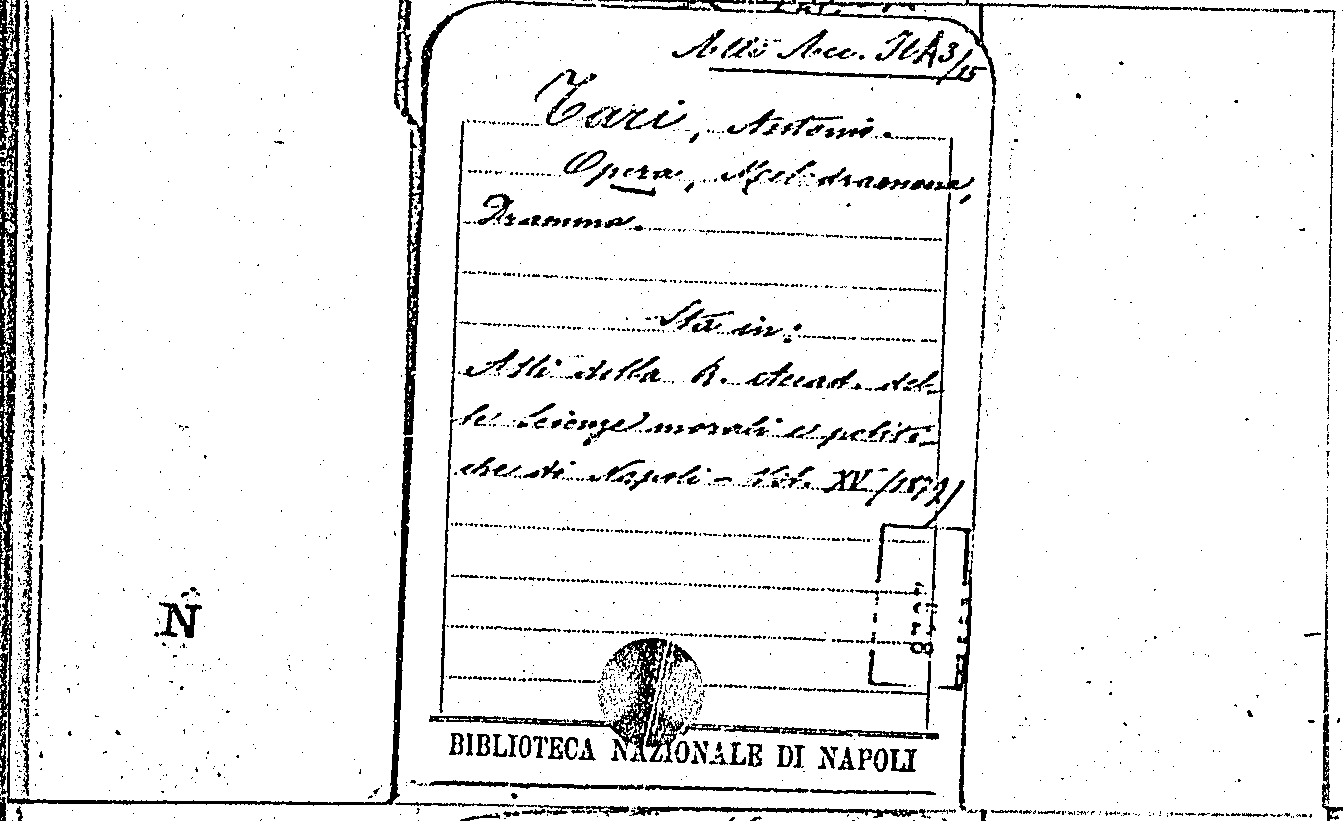 Atti Acc. It A3/15
Tari, Antonio.
Opera, Melodramma,
Dramma.
Sta in:
Atti della R. Accad. del-
le Scienze morali e politi-
che di Napoli - Vol. XV (1879)
N
BIBLIOTECA NAZIONALE DI NAPOLI